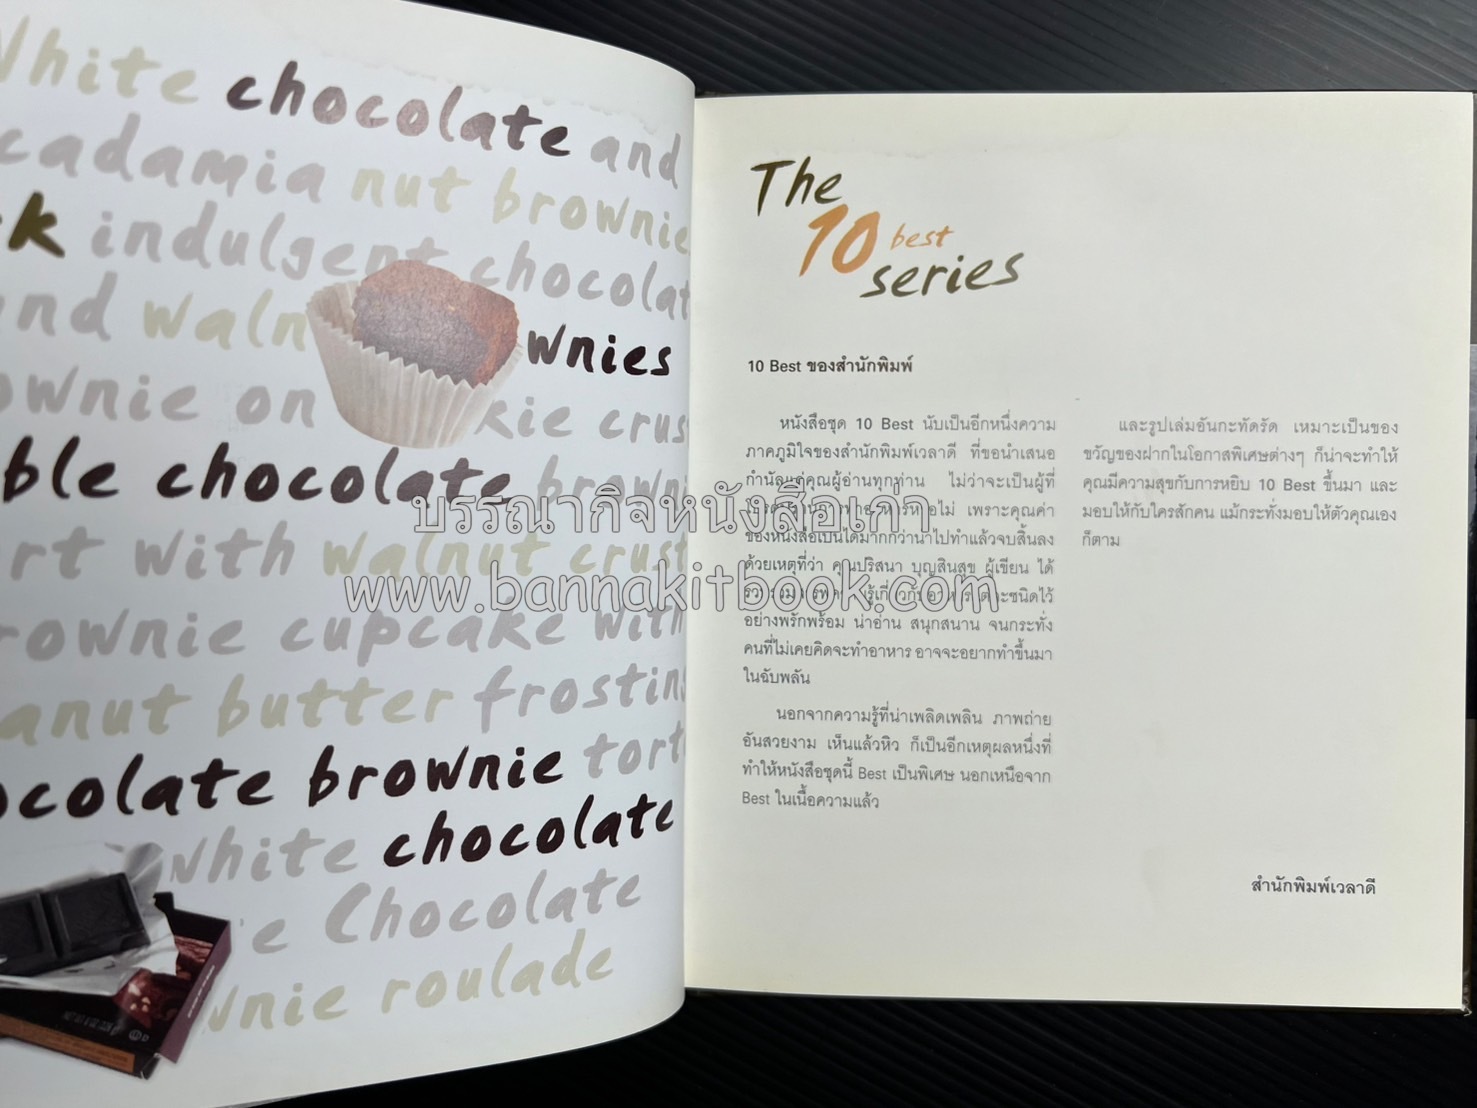 White chocolate and
cadamia nut brownie
k indulgent chocolat
and waln wnies
ownie on kie crus
ble chocolate browni
rt with walnut crust
rownie cupcake with
anut butter frosting
ocolate brownie tort
white chocolate
e Chocolate
wnie roulade
The
10 best
series
10 Best ของสำนักพิมพ์
หนังสือชุด 10 Best นับเป็นอีกหนึ่งความ
ภาคภูมิใจของสำนักพิมพ์เวลาดี ที่ขอนำเสนอ
กำนัลแด่คุณผู้อ่านทุกท่าน ไม่ว่าจะเป็นผู้ที่
หรือไม่ เพราะคุณค่า
ของหนังสือเป็นได้มากกว่านำไปทำแล้วจบสิ้นลง
ด้วยเหตุที่ว่า คุณปริสนา บุญสินสุข ผู้เขียน ได้
ไว้
อย่างพรักพร้อม น่าอ่าน สนุกสนาน จนกระทั่ง
คนที่ไม่เคยคิดจะทำอาหาร อาจจะอยากทำขึ้นมา
ในฉับพลัน
นอกจากความรู้ที่น่าเพลิดเพลิน ภาพถ่าย
อันสวยงาม เห็นแล้วหิว ก็เป็นอีกเหตุผลหนึ่งที่
ทำให้หนังสือชุดนี้ Best เป็นพิเศษ นอกเหนือจาก
Best ในเนื้อความแล้ว
และรูปเล่มอันกะทัดรัด เหมาะเป็นของ
ขวัญของฝากในโอกาสพิเศษต่างๆ ก็น่าจะทำให้
คุณมีความสุขกับการหยิบ 10 Best ขึ้นมา และ
มอบให้กับใครสักคน แม้กระทั่งมอบให้ตัวคุณเอง
ก็ตาม
สำนักพิมพ์เวลาดี
บรรณากิจหนังสือเก่า
www.bannakitbook.com